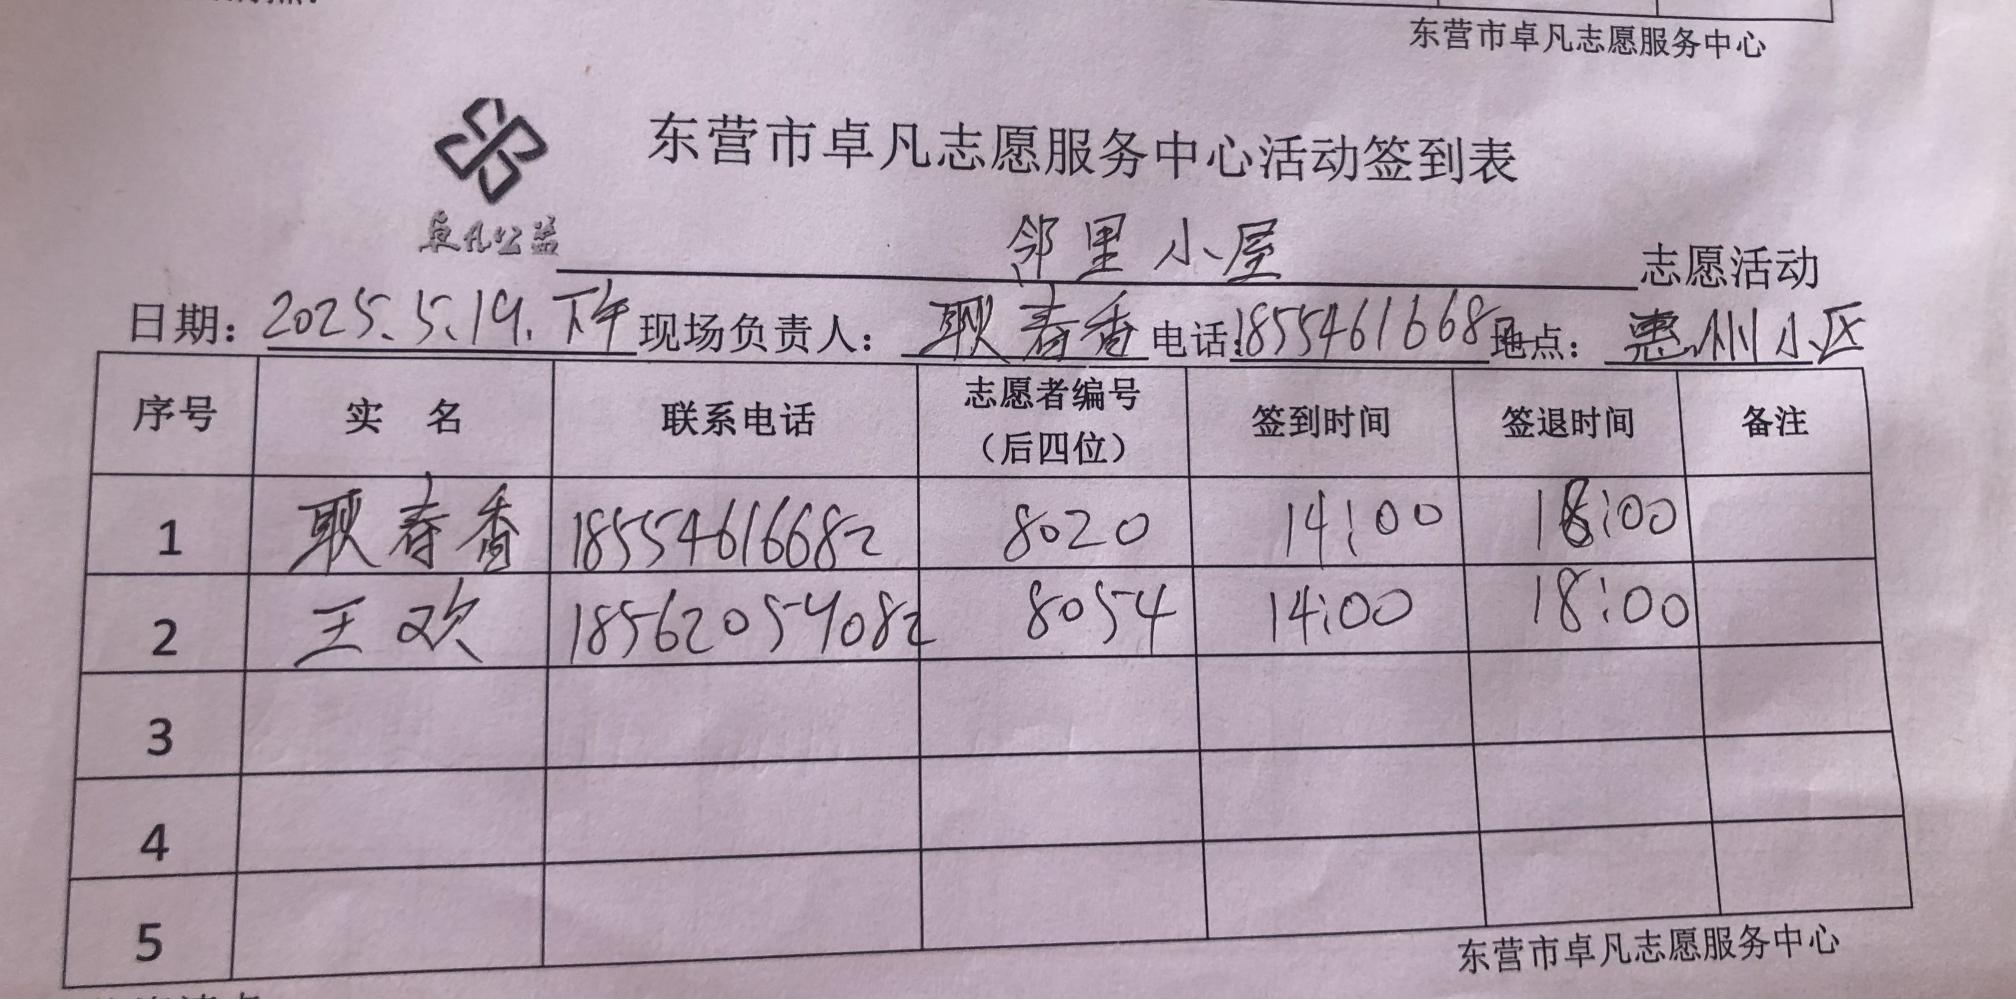 东营市卓凡志愿服务中心
东营市卓凡志愿服务中心活动签到表
卓凡公益
邻里小屋 志愿活动
日期：2025.5.19.下午 现场负责人：耿春香 电话:1855461668 地点：惠州小区
序号 实 名 联系电话 志愿者编号（后四位） 签到时间 签退时间 备注
1 耿春香 18554616682 8020 14:00 18:00
2 王欢 18562054082 8054 14:00 18:00
3
4
5
东营市卓凡志愿服务中心